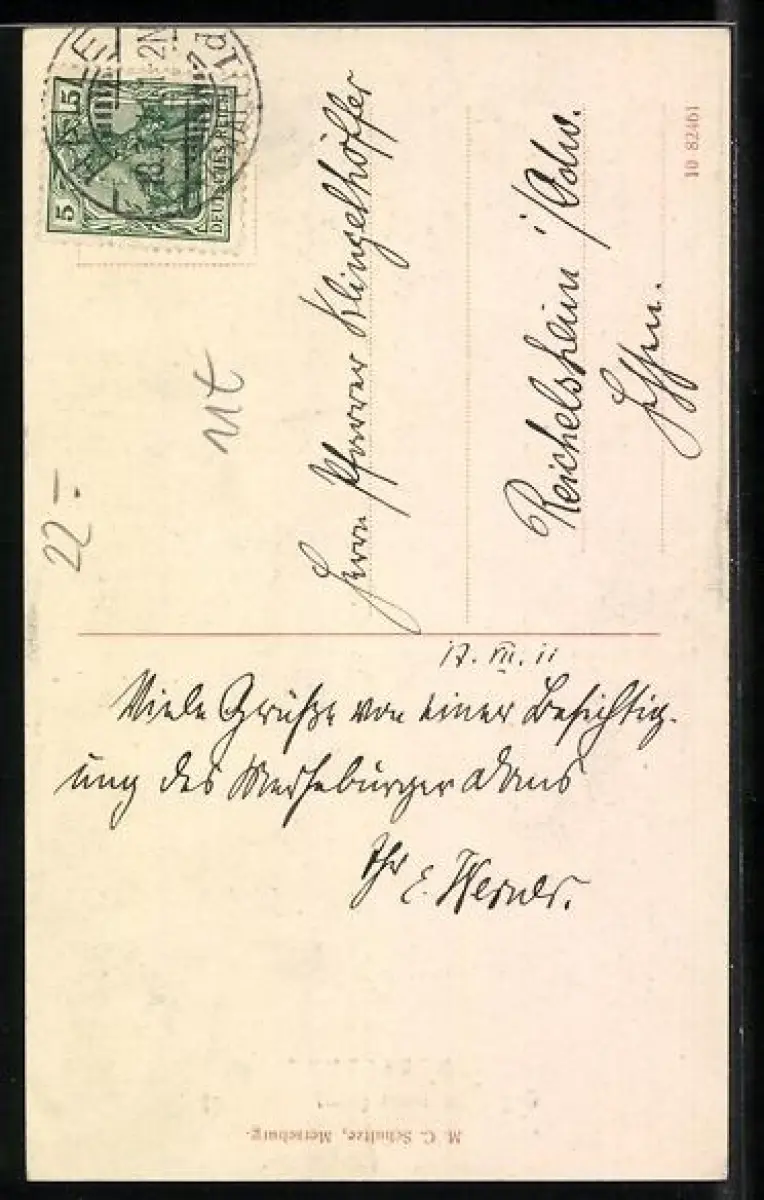 5 5
DEUTSCHES REICH
Herrn Pfarrer Klingelhöffer
Reichelsheim i/Odw.
Hessen.
10 82461
22.-
17. VII. 11
Viele Grüße von einer Besichtig-
ung des Merseburger Doms
Ihr E. Werner.
M. C. Schultze, Merseburg.